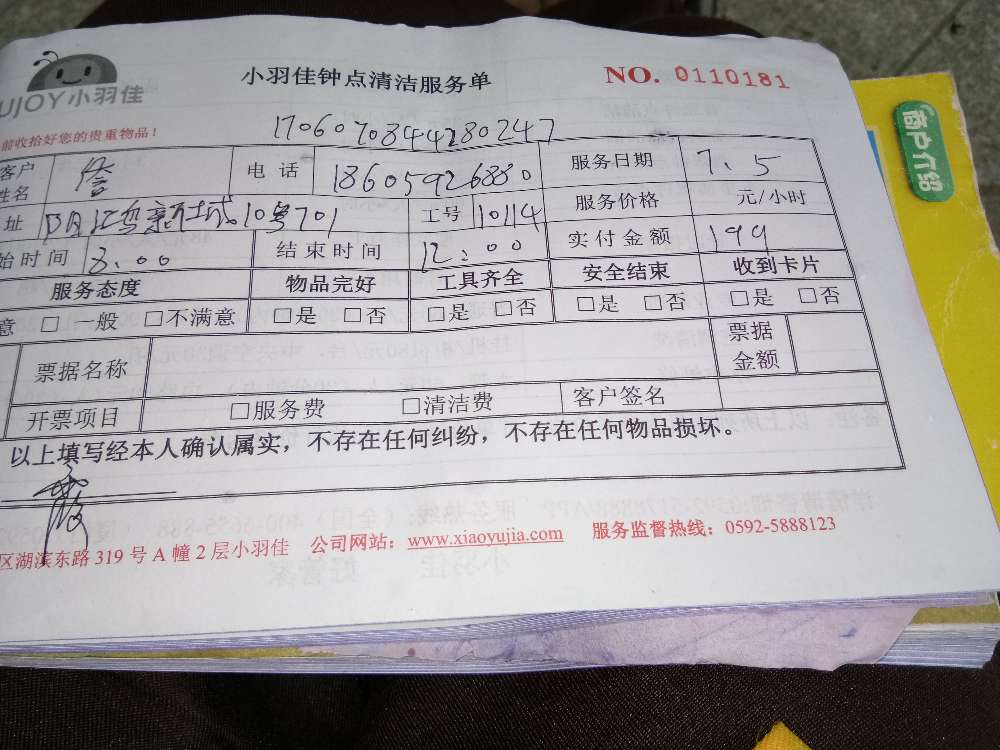 小羽佳钟点清洁服务单 NO. 0110181
UJOY小羽佳
前收拾好您的贵重物品！
1706070844280247
客户姓名 电话 18605926880 服务日期 7、5
址 10号701 工号 10114 服务价格 元/小时
始时间 8:00 结束时间 12:00 实付金额 199
服务态度 物品完好 工具齐全 安全结束 收到卡片
意 □一般 □不满意 □是 □否 □是 □否 □是 □否 □是 □否
票据名称 票据金额
开票项目 □服务费 □清洁费 客户签名
以上填写经本人确认属实，不存在任何纠纷，不存在任何物品损坏。
区湖滨东路319号A幢2层小羽佳 公司网站：www.xiaoyujia.com 服务监督热线：0592-5888123
商户介绍